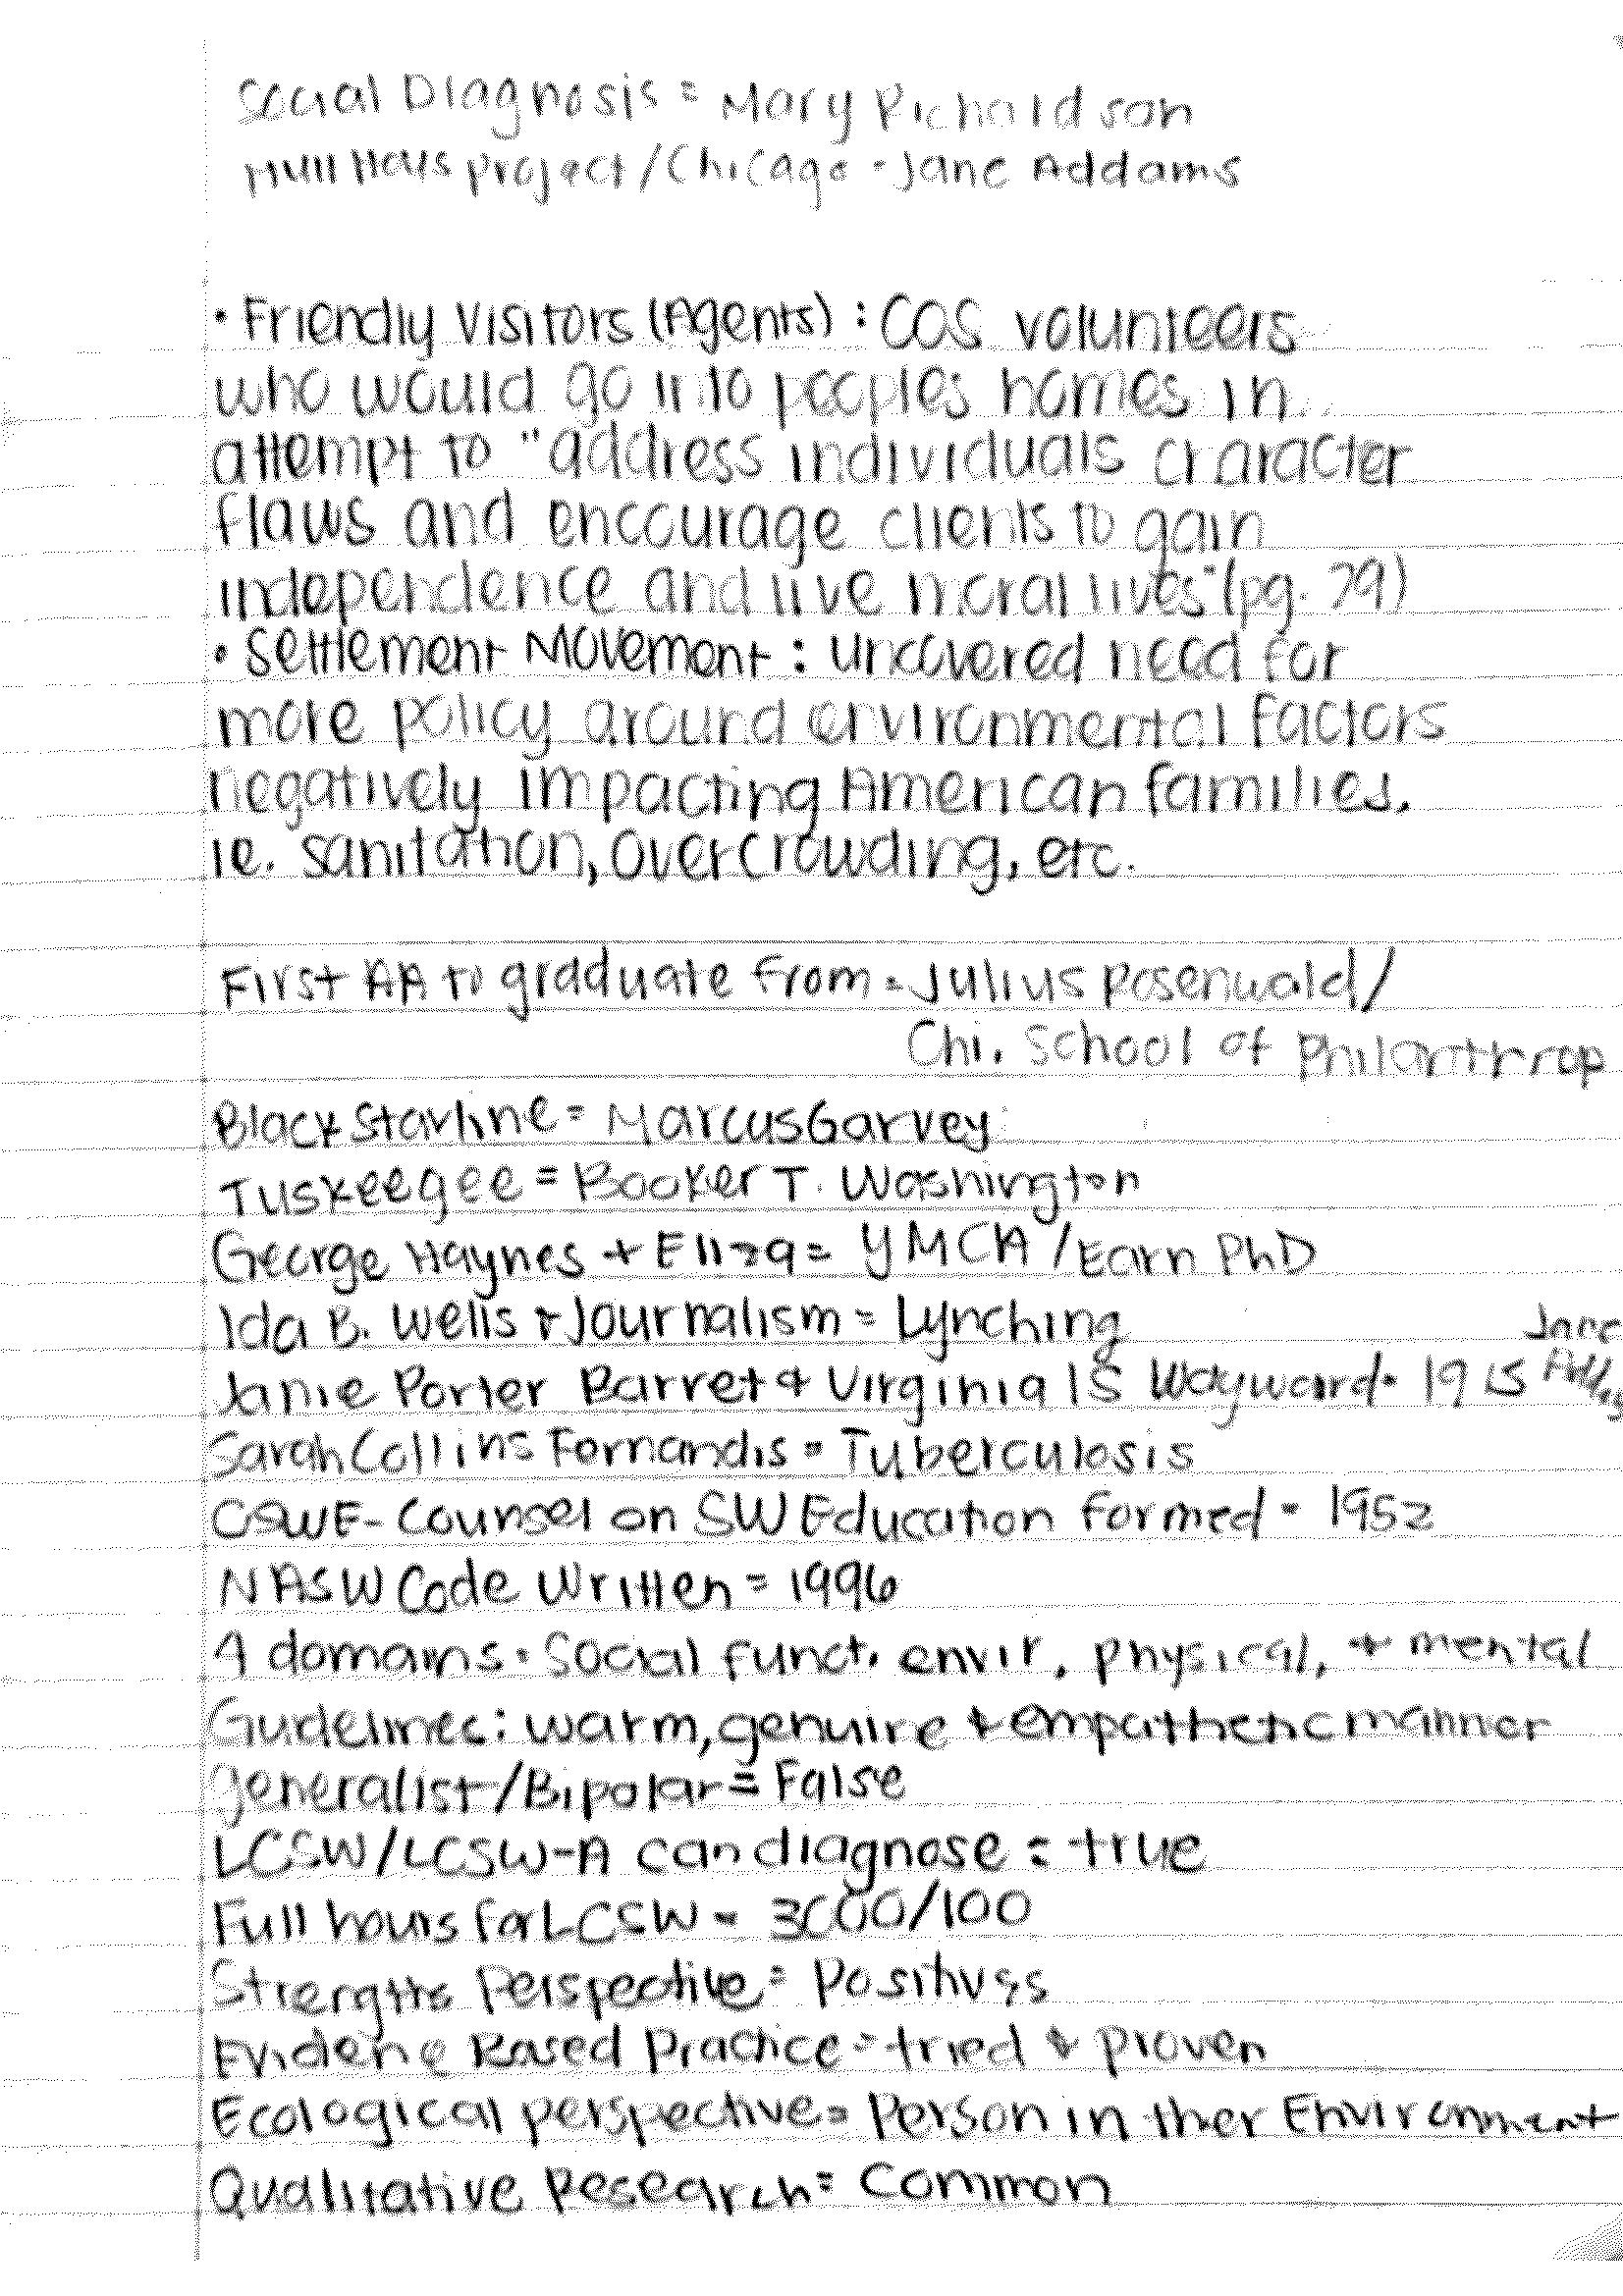 Social Diagnosis = Mary Richardson
Hull Haus project/Chicago - Jane Addams
• Friendly Visitors (Agents) : COS volunteers
who would go into peoples homes in
attempt to "address individuals character
flaws and encourage clients to gain
independence and live moral lives" (pg. 79)
• Settlement Movement : uncovered need for
more policy around environmental factors
negatively impacting American families.
ie. sanitation, overcrowding, etc.
First AA to graduate from = Julius Rosenwald/
Chi. School of Philanthrop
Black Starline = Marcus Garvey
Tuskeegee = Booker T. Washington
George Haynes + Eliza = YMCA / Earn PhD
Ida B. Wells + Journalism = Lynching
Janie Porter Barret + Virginia IS Wayward - 1915 Jane
Sarah Collins Fernandis = Tuberculosis
CSWE - Counsel on SW Education formed - 1952
NASW Code Written = 1996
4 domains - Social funct. envir, physical, + mental
Gudelines: warm, genuine + empathetic manner
generalist/Bipolar = False
LCSW/LCSW-A can diagnose = true
Full hours for LCSW - 3000/100
Strengths Perspective = Positives
Evidene Based Practice = tried & proven
Ecological perspective = Person in ther Environment
Qualitative Research = Common